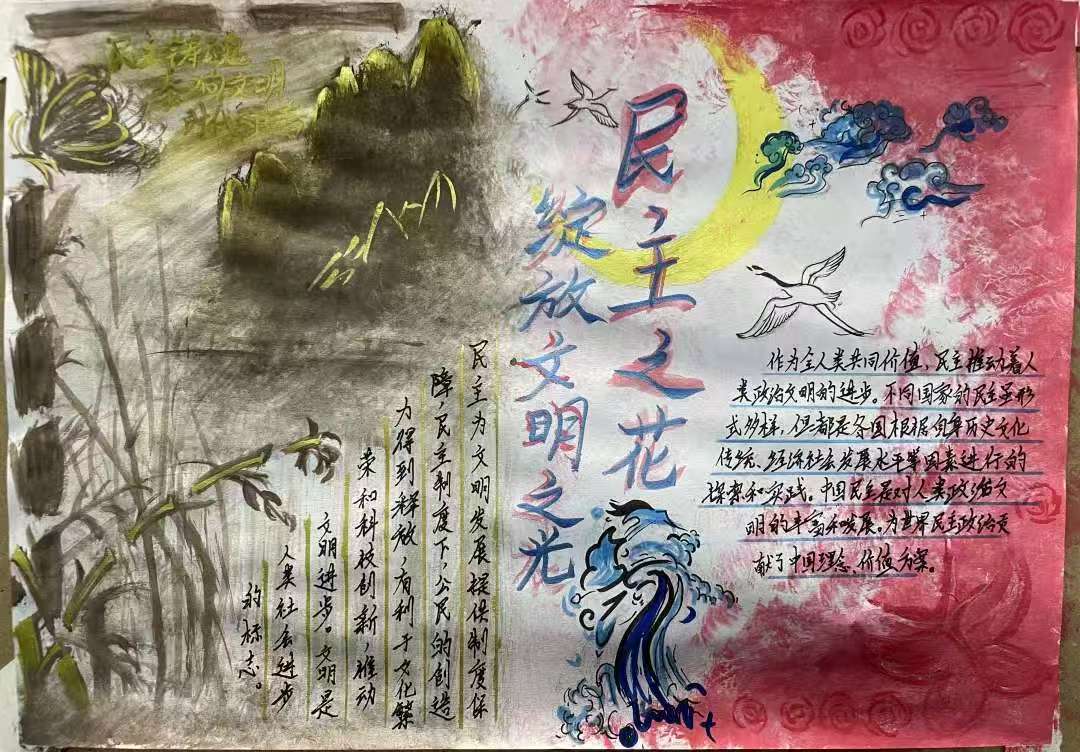 民主之花
绽放文明之光
作为全人类共同价值，民主推动着人
类政治文明的进步。不同国家的民主虽形
式多样，但都是各国根据自身历史文化
传统、经济社会发展水平等因素进行的
探索和实践。中国民主是对人类政治文
明的丰富和发展。为世界民主政治贡
献了中国理念、价值、方案。
民主为文明发展提供制度保
障，民主制度下，公民的创造
力得到释放，有利于文化繁
荣和科技创新，推动
文明进步。文明是
人类社会进步
的标志。
民主
文明